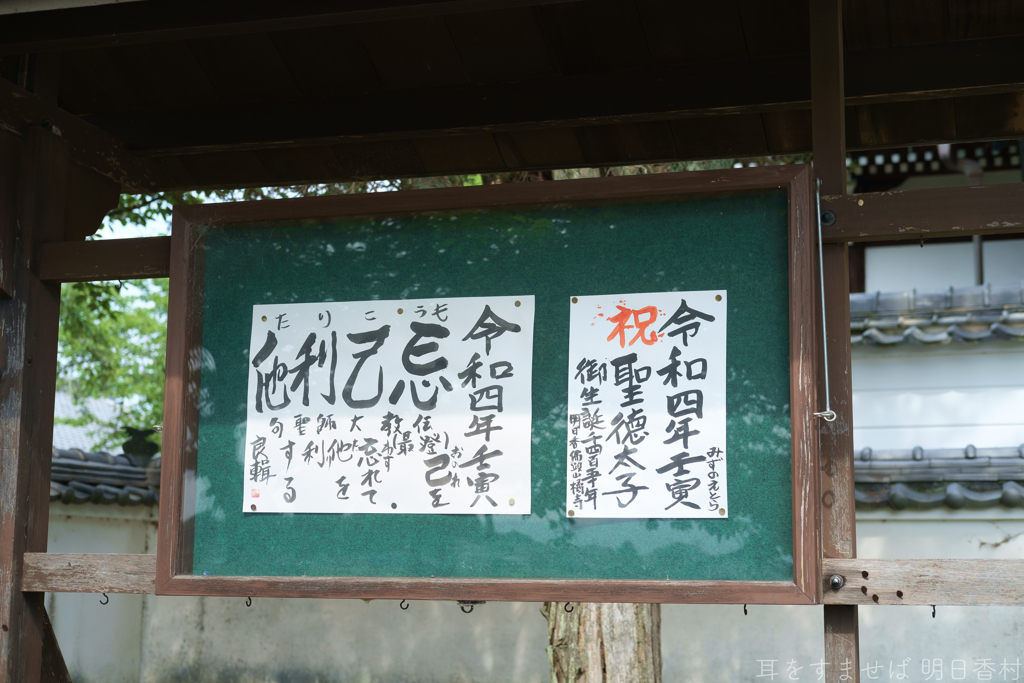 令和四年壬寅
みずのえとら
祝
聖徳太子
御生誕千四百
年
明日香佛頭山橘寺
令和四年壬寅
もうこりた
忘己利他
伝教大師聖句
最澄
己を
おのれ
忘れて
わす
他を
利
する
良輯
耳をすませば 明日香村